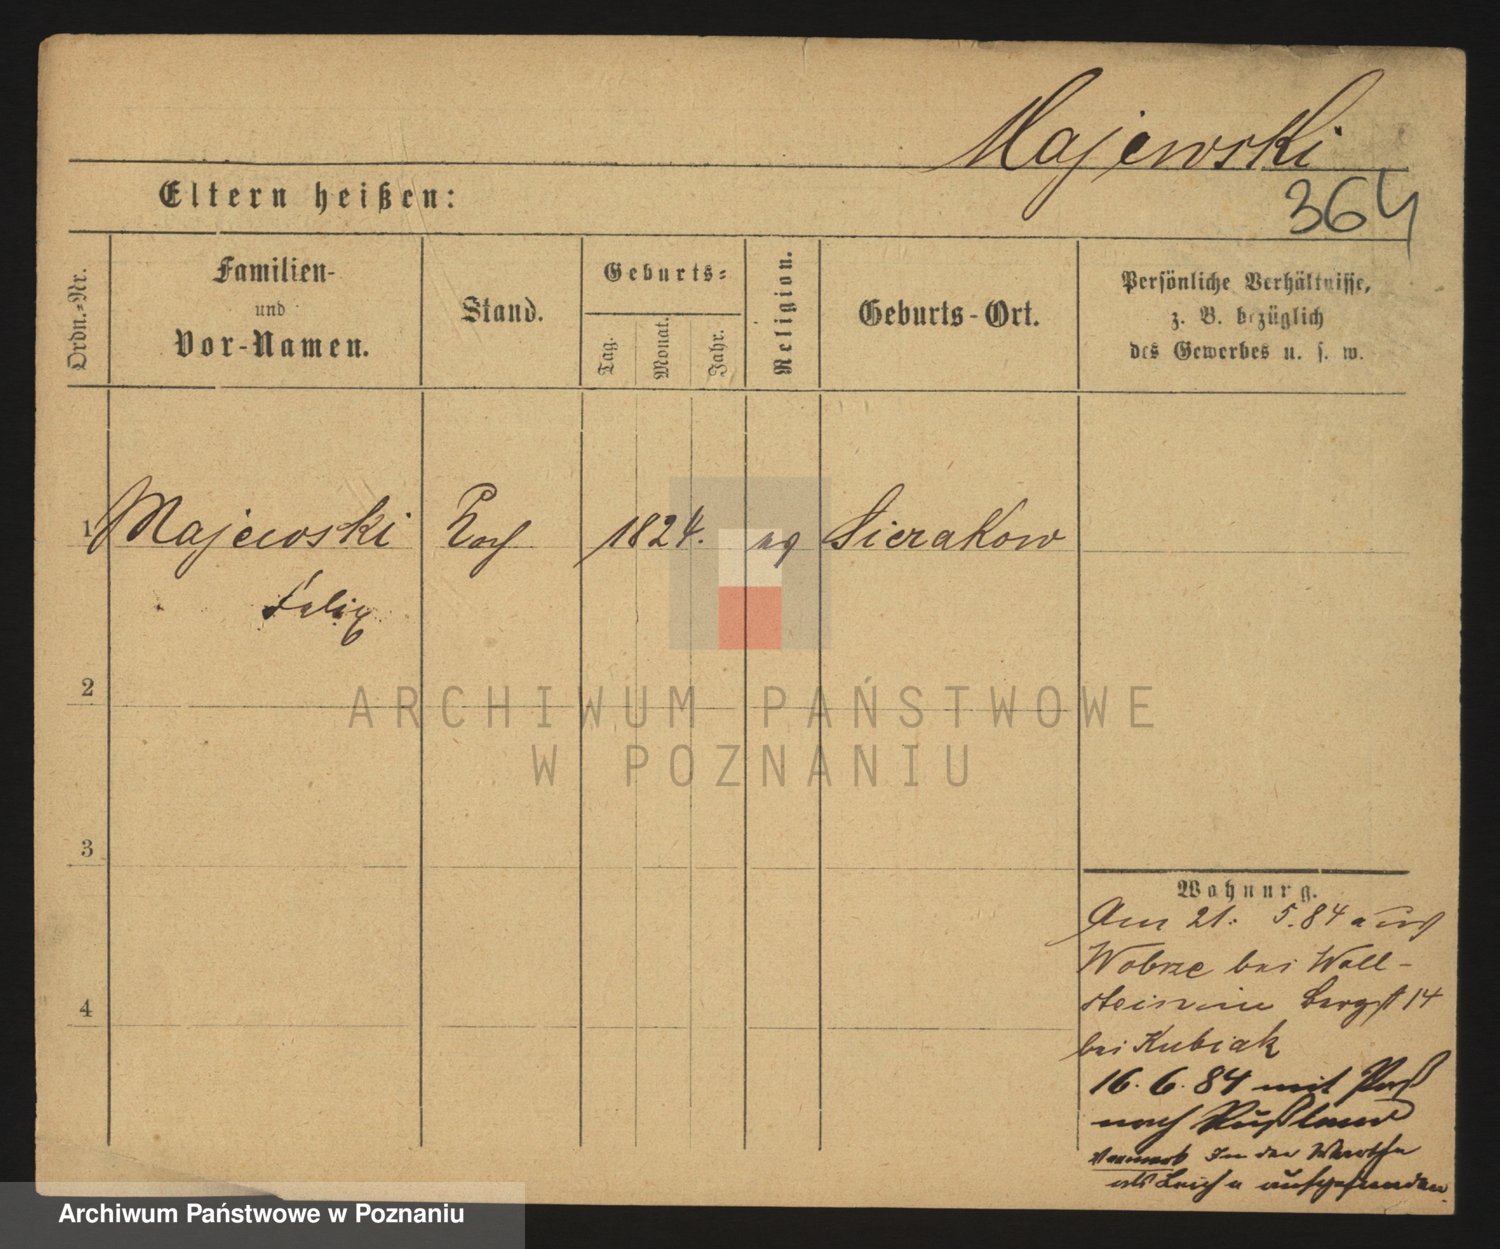 Majewski
364
Eltern heißen:
Ordn.-Nr.
Familien-
und
Vor-Namen.
Stand.
Geburts-
Tag.
Monat.
Jahr.
Religion.
Geburts-Ort.
Persönliche Verhältnisse,
z. B. bezüglich
des Gewerbes u. s. w.
1 Majewski Koch 1824. Sierakow
Felix
2
ARCHIWUM PAŃSTWOWE
W POZNANIU
3
Wohnung.
Am 21. 5. 84 aus
Wobrze bei Woll-
stein Bergst 14
4
bei Kubiak
16. 6. 84 mit Paß
nach Rußland
Vermerk In der Warthe
als Leiche aufgefunden
Archiwum Państwowe w Poznaniu